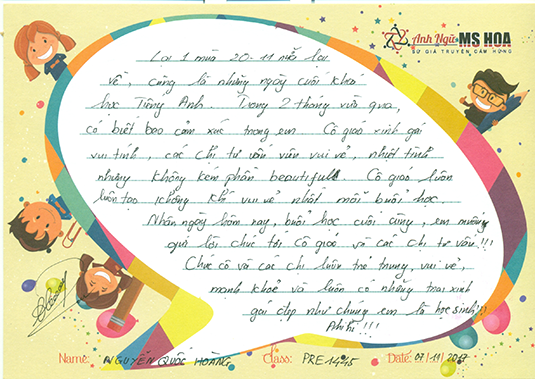 Anh Ngữ MS HOA
SỨ GIẢ TRUYỀN CẢM HỨNG
Lại 1 mùa 20-11 nữa lại
về, cũng là những ngày cuối khoá
học Tiếng Anh. Trong 2 tháng vừa qua,
có biết bao cảm xúc trong em. Cô giáo xinh gái
vui tính, các chị tư vấn viên vui vẻ, nhiệt tình
nhưng không kém phần beautiful. Cô giáo luôn
luôn tạo không khí vui vẻ nhất mỗi buổi học.
Nhân ngày hôm nay, buổi học cuối cùng, em muốn
gửi lời chúc tới Cô giáo và các chị tư vấn!!!
Chúc cô và các chị luôn trẻ trung, vui vẻ,
mạnh khoẻ và luôn có những trai xinh
gái đẹp như chúng em là học sinh!!!
Hihi!!!
Name: NGUYỄN QUỐC HOÀNG Class: PRE Date: 07/11/